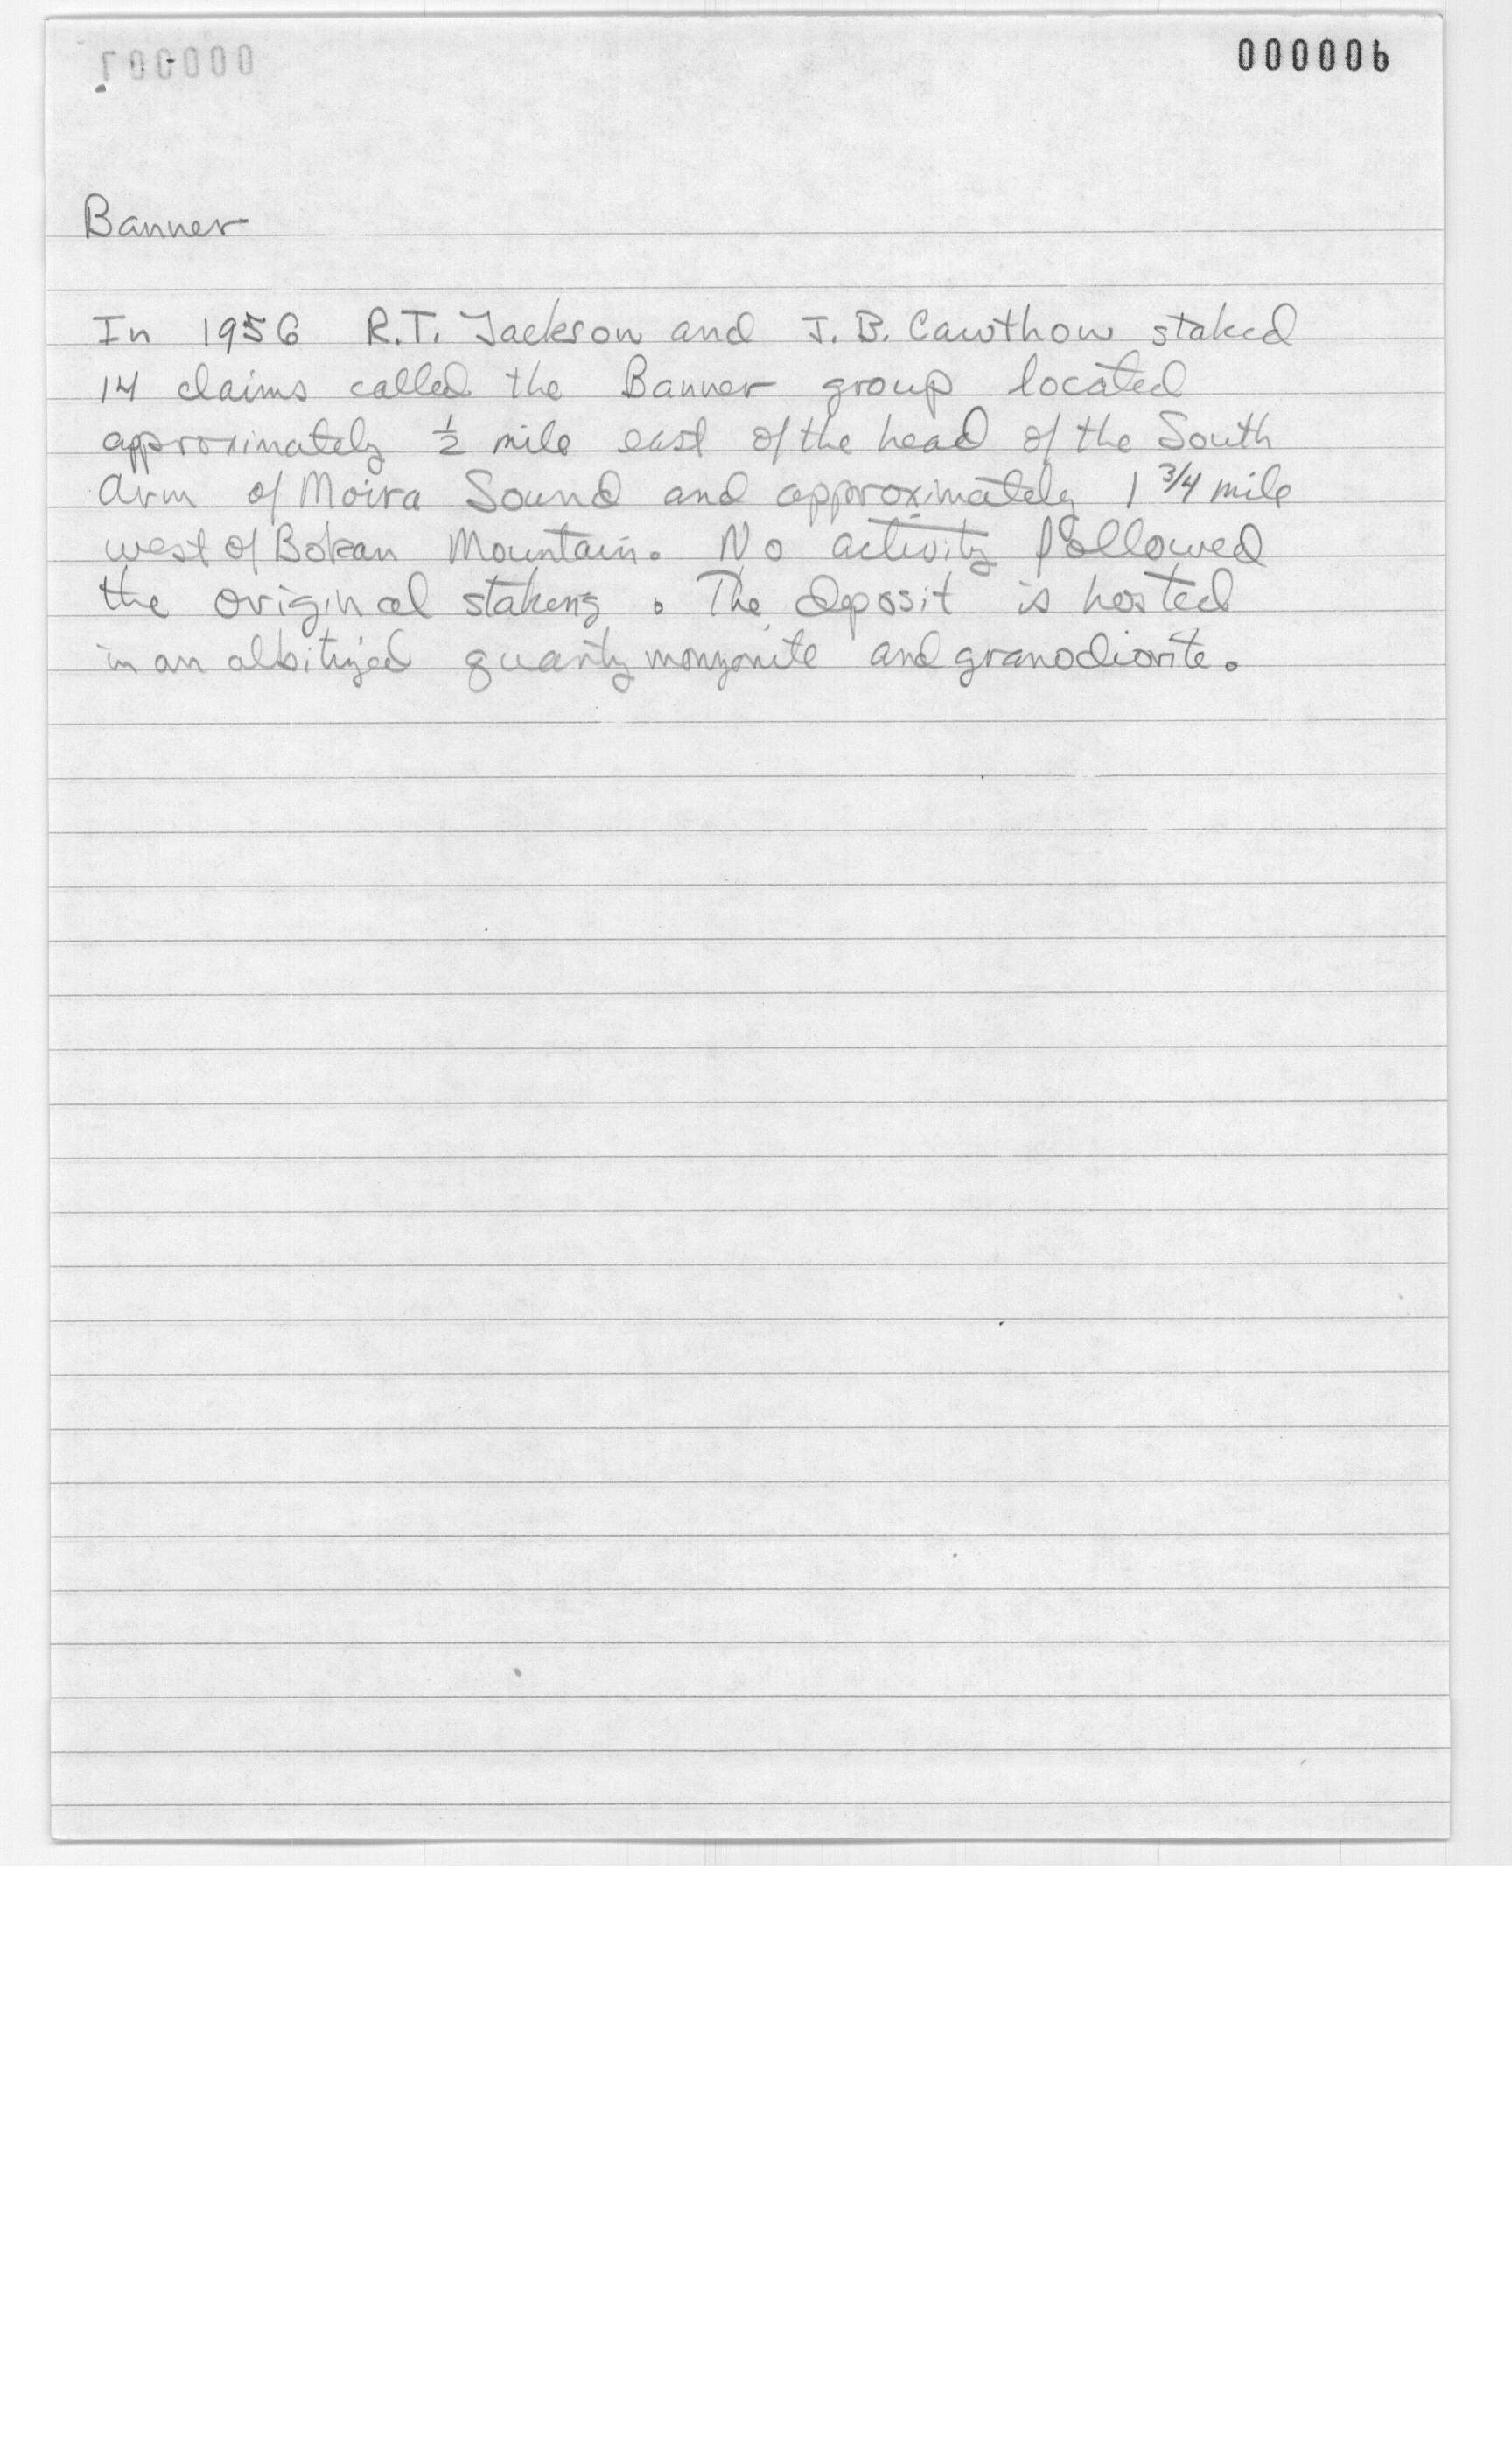 000006
Banner
In 1956 R.T. Jackson and J.B. Cawthow staked
14 claims called the Banner group located
approximately ½ mile east of the head of the South
Arm of Moira Sound and approximately 1 3/4 mile
west of Bokan Mountain. No activity followed
the original staking. The deposit is hosted
in an albitized quartz monzonite and granodiorite.